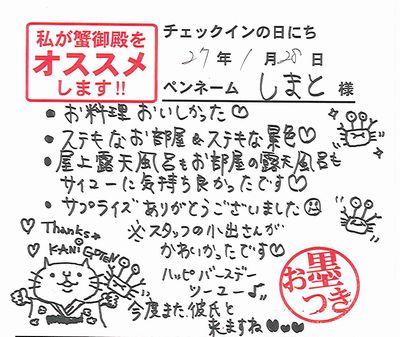 私が蟹御殿を
オススメ
します!!
チェックインの日にち
27年 1月 28日
ペンネーム しまと 様
• お料理 おいしかった♡
• ステキなお部屋&ステキな景色♡
• 屋上露天風呂もお部屋の露天風呂も
サイコーに気持ち良かったです♡
• サプライズ ありがとうございました
♡ Thanks
KANI GOTEN
※スタッフの小出さんが
かわいかったです♡
ハッピバースデー
ツーユー♪
今度また、彼氏と
来ますね♡♥♡
お墨
つき